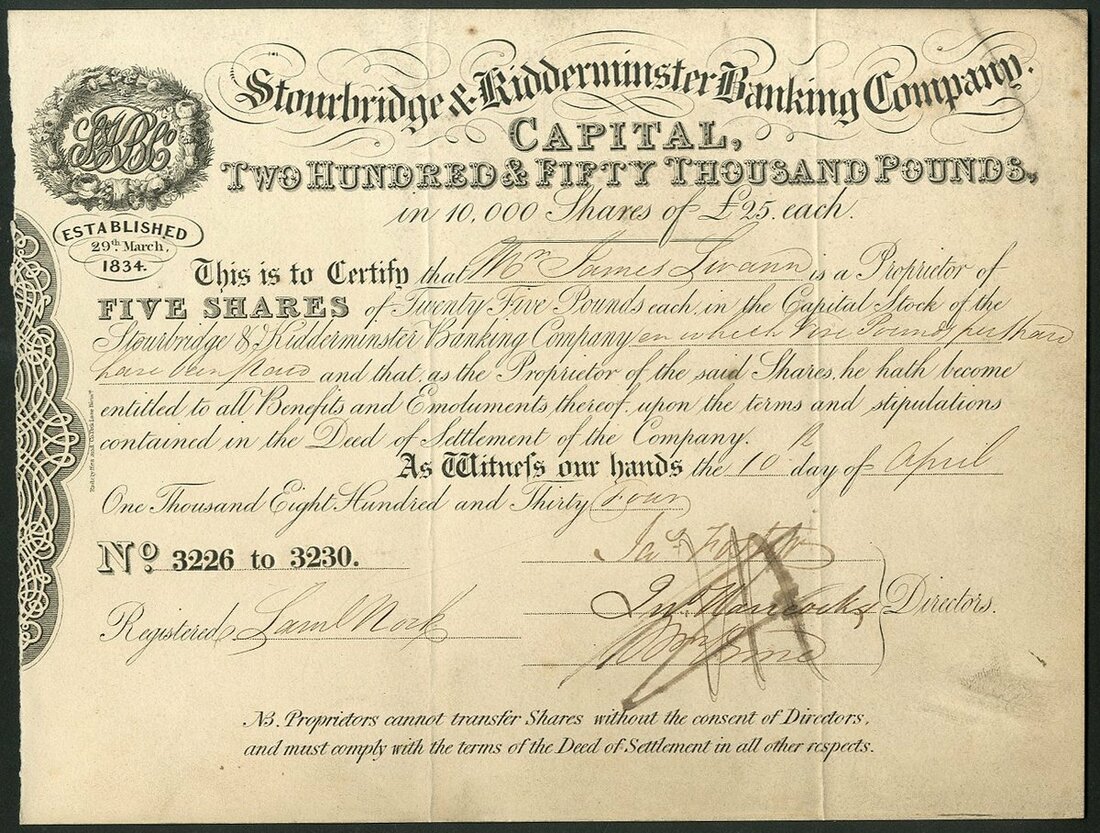 Stourbridge & Kidderminster Banking Company.
CAPITAL,
TWO HUNDRED & FIFTY THOUSAND POUNDS,
in 10,000 Shares of £25 each.
S&KBCo
ESTABLISHED
29th March,
1834.
This is to Certify that Mr James Swann is a Proprietor of
FIVE SHARES of Twenty Five Pounds each, in the Capital Stock of the
Stourbridge & Kidderminster Banking Company on which Five Pounds per share
have been paid and that, as the Proprietor of the said Shares, he hath become
entitled to all Benefits and Emoluments thereof, upon the terms and stipulations
contained in the Deed of Settlement of the Company.
As Witneſs our hands the 10th day of April
One Thousand Eight Hundred and Thirty Four
No. 3226 to 3230.
Jas. Foster
Jno. Hancocks Directors.
Registered
NB. Proprietors cannot transfer Shares without the consent of Directors,
and must comply with the terms of the Deed of Settlement in all other respects.